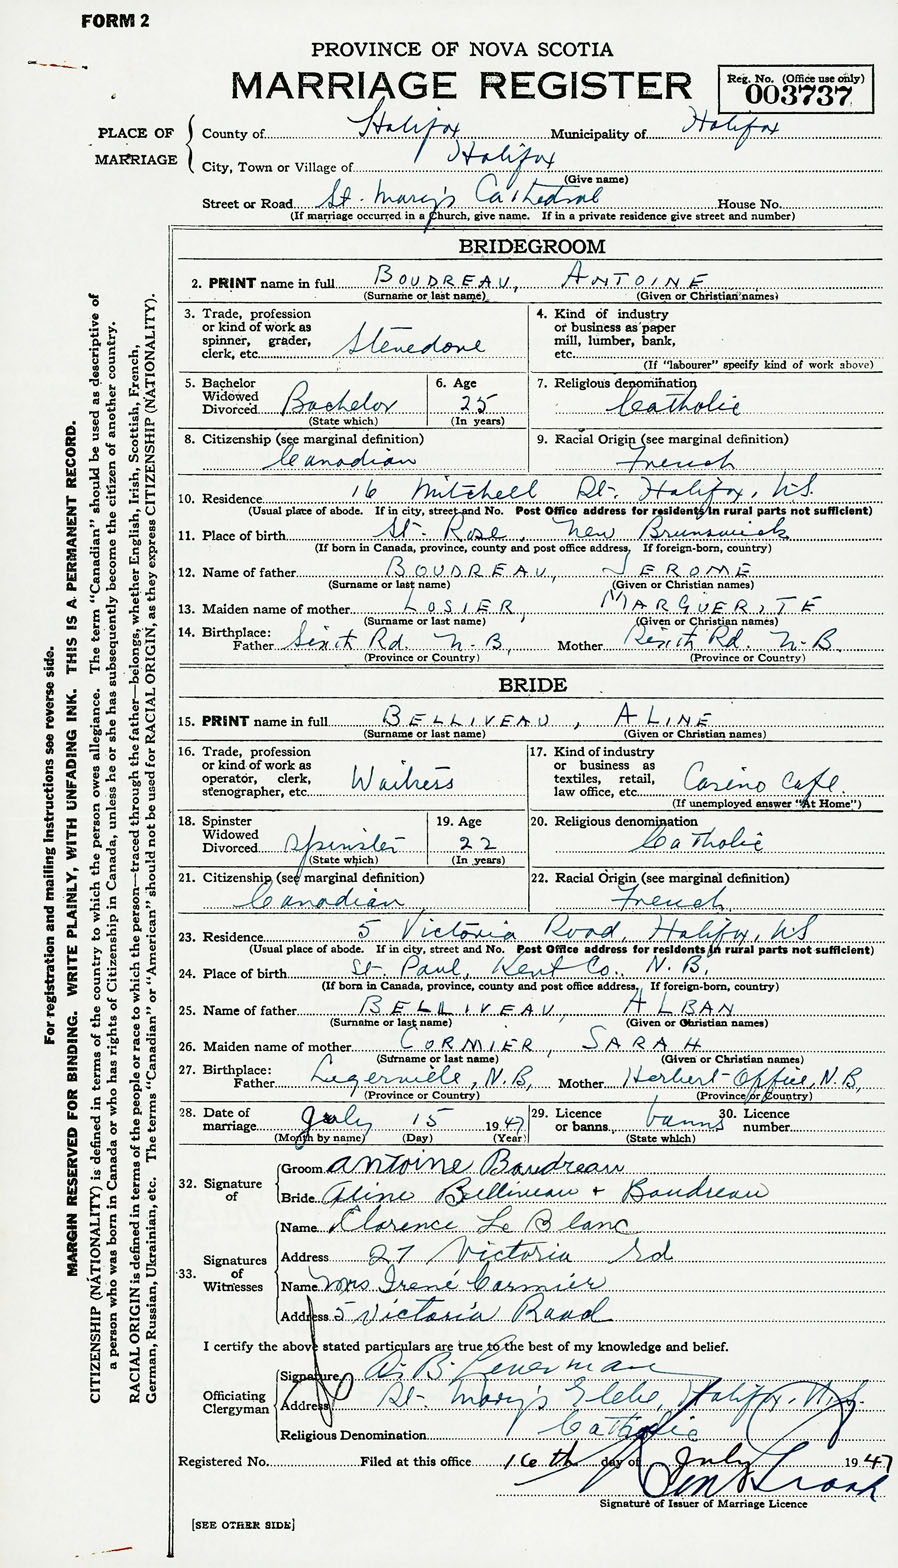 FORM 2
PROVINCE OF NOVA SCOTIA
MARRIAGE REGISTER
Reg. No. (Office use only)
003737
PLACE OF MARRIAGE
County of Halifax Municipality of Halifax
City, Town or Village of Halifax
(Give name)
Street or Road St. Mary's Cathedral House No.
(If marriage occurred in a church, give name. If in a private residence give street and number)
BRIDEGROOM
2. PRINT name in full BOUDREAU, ANTOINE
(Surname or last name) (Given or Christian names)
3. Trade, profession or kind of work as spinner, grader, clerk, etc. Stevedore
4. Kind of industry or business as paper mill, lumber, bank, etc.
(If "labourer" specify kind of work above)
5. Bachelor Widowed Divorced Bachelor
(State which)
6. Age 25
(In years)
7. Religious denomination Catholic
8. Citizenship (see marginal definition) Canadian
9. Racial Origin (see marginal definition) French
10. Residence 16 Mitchell St. Halifax, N.S.
(Usual place of abode. If in city, street and No. Post Office address for residents in rural parts not sufficient)
11. Place of birth St. Rose, New Brunswick
(If born in Canada, province, county and post office address, If foreign-born, country)
12. Name of father BOUDREAU, JEROME
(Surname or last name) (Given or Christian names)
13. Maiden name of mother LOSIER, MARGUERITE
(Surname or last name) (Given or Christian names)
14. Birthplace:
Father Rd. N-B, Mother Rd. N-B
(Province or Country) (Province or Country)
BRIDE
15. PRINT name in full BELLIVEAU, ALINE
(Surname or last name) (Given or Christian names)
16. Trade, profession or kind of work as operator, clerk, stenographer, etc. Waitress
17. Kind of industry or business as textiles, retail, law office, etc. Casino Cafe.
(If unemployed answer "At Home")
18. Spinster Widowed Divorced Spinster
(State which)
19. Age 22
(In years)
20. Religious denomination Catholic
21. Citizenship (see marginal definition) Canadian
22. Racial Origin (see marginal definition) French
23. Residence 5 Victoria Road, Halifax, NS
(Usual place of abode. If in city, street and No. Post Office address for residents in rural parts not sufficient)
24. Place of birth St. Paul, Kent Co., N.B.
(If born in Canada, province, county and post office address, If foreign-born, country)
25. Name of father BELLIVEAU, ALBAN
(Surname or last name) (Given or Christian names)
26. Maiden name of mother CORMIER, SARAH
(Surname or last name) (Given or Christian names)
27. Birthplace:
Father N.B, Mother Herbert Office, N.B,
(Province or Country) (Province or Country)
28. Date of marriage July 15 1947
(Month by name) (Day) (Year)
29. Licence or banns banns
(State which)
30. Licence number
32. Signature of
Groom Antoine Boudreau
Bride Aline Belliveau + Boudreau
33. Signatures of Witnesses
Name Clarence LeBlanc
Address 27 Victoria rd
Name Mrs Irené Cormier
Address 5 Victoria Road
I certify the above stated particulars are true to the best of my knowledge and belief.
Officiating Clergyman
Signature W. B.
Address St. Mary's Halifax, N.S.
Religious Denomination Catholic
Registered No. Filed at this office 16th day of July 1947
Signature of Issuer of Marriage Licence
[SEE OTHER SIDE]
For registration and mailing instructions see reverse side.
MARGIN RESERVED FOR BINDING. WRITE PLAINLY, WITH UNFADING INK. THIS IS A PERMANENT RECORD.
CITIZENSHIP (NATIONALITY) is defined in terms of the country to which the person owes allegiance. The term "Canadian" should be used as descriptive of
a person who was born in Canada or who has rights of Citizenship in Canada, unless he or she has subsequently become the citizen of another country.
RACIAL ORIGIN is defined in terms of the people or race to which the person—traced through the father—belongs, whether English, Irish, Scottish, French,
German, Russian, Ukrainian, etc. The terms "Canadian" or "American" should not be used for RACIAL ORIGIN, as they express CITIZENSHIP (NATIONALITY).